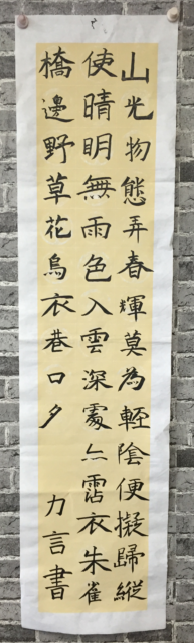 山光物態弄春輝莫為輕陰便擬歸縱
使晴明無雨色入雲深處亦霑衣朱雀
橋邊野草花烏衣巷口夕
力言書